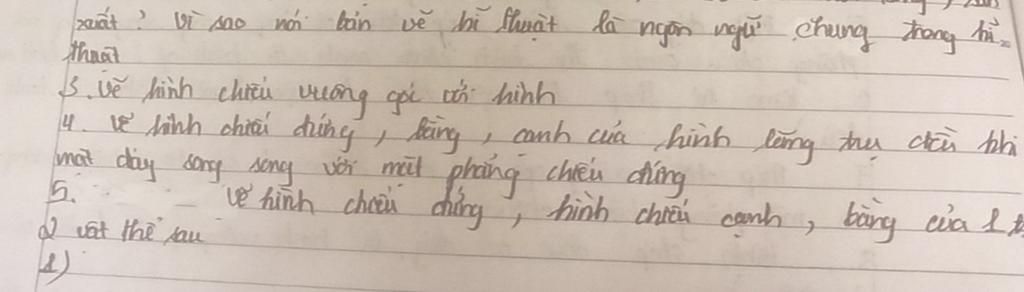 xuất? Vì sao nói bản vẽ kĩ thuật là ngôn ngữ chung trong kĩ
thuật
3. Vẽ hình chiếu vuông góc với hình
4. Vẽ hình chiếu đứng, bằng, cạnh của hình lăng trụ đều khi
mặt đáy song song với mặt phẳng chiếu đứng
5. Vẽ hình chiếu đứng, hình chiếu cạnh, bằng của 1
2 vật thể sau
1)